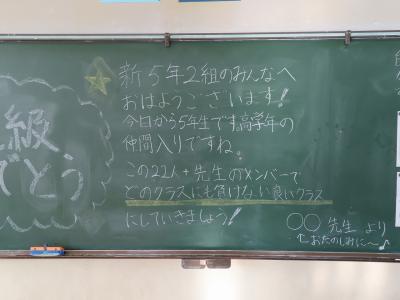 級
でとう
新5年2組のみんなへ
おはようございます!
今日から5年生です。高学年の
仲間入りですね。
この22人+先生のメンバーで
どのクラスにも負けない良いクラス
にしていきましょう!
○○先生より
↑おたのしみに〜♪